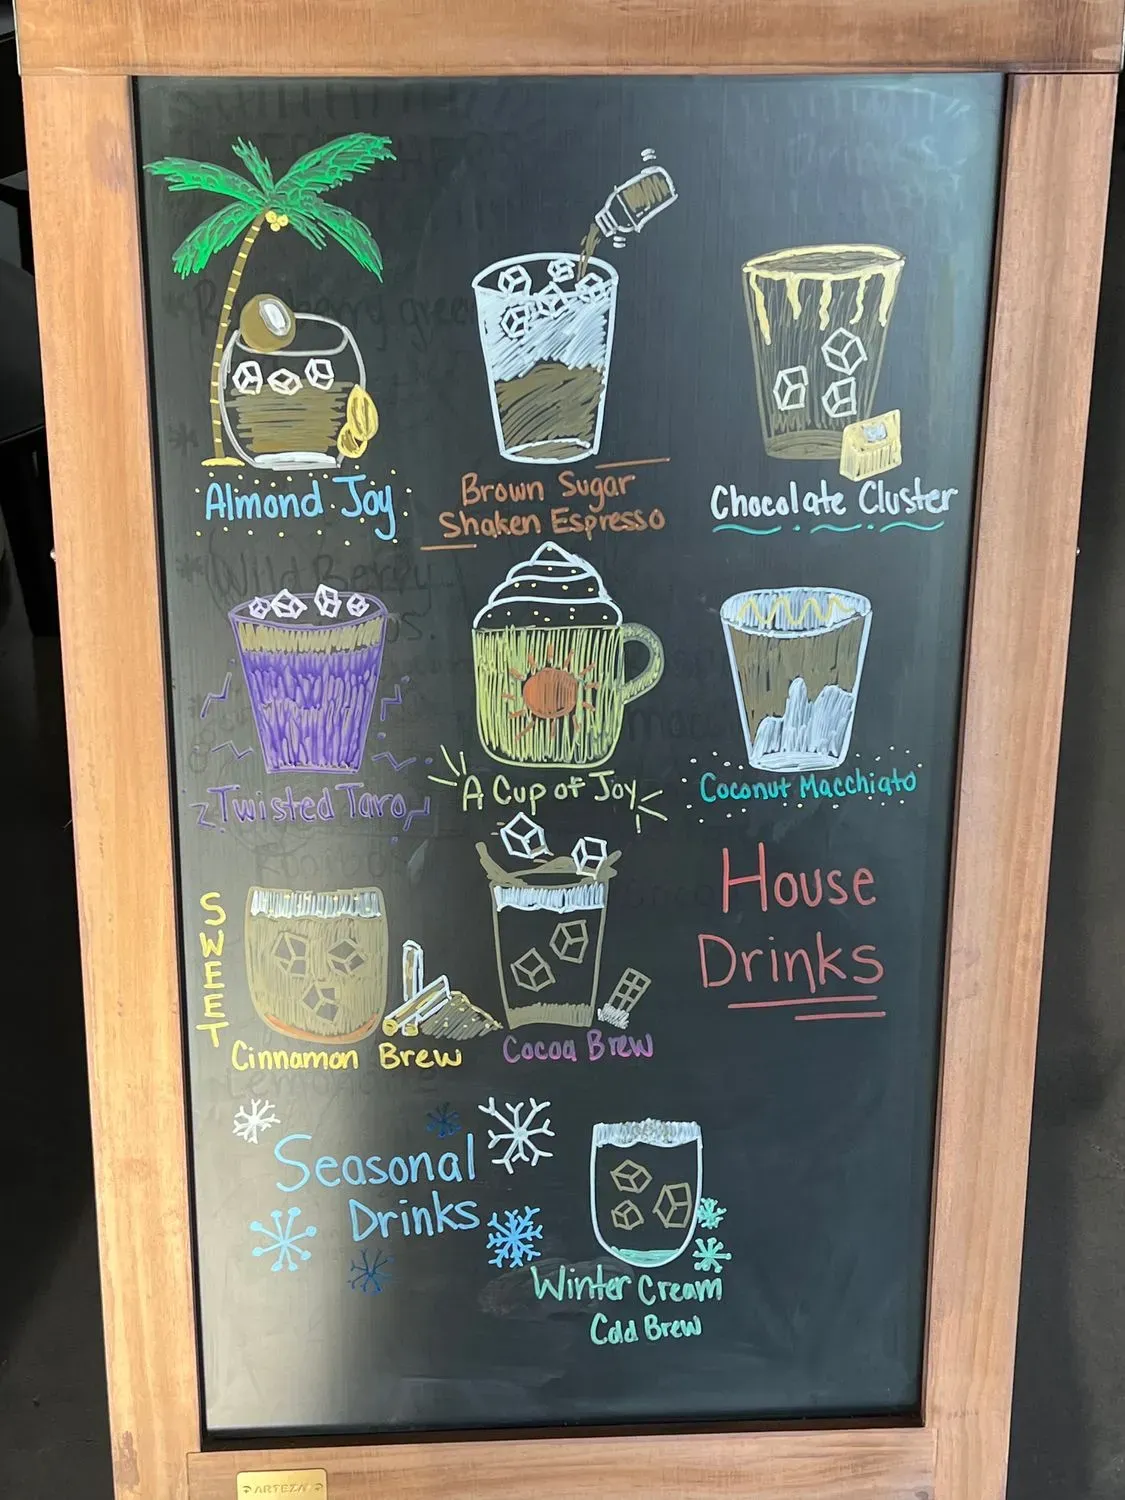 Almond Joy
Brown Sugar
Shaken Espresso
Chocolate Cluster
Wild Berry
Twisted Taro
A Cup of Joy
Coconut Macchiato
House
Drinks
SWEET
Cinnamon Brew
Cocoa Brew
Seasonal
Drinks
Winter Cream
Cold Brew
ARTEZA